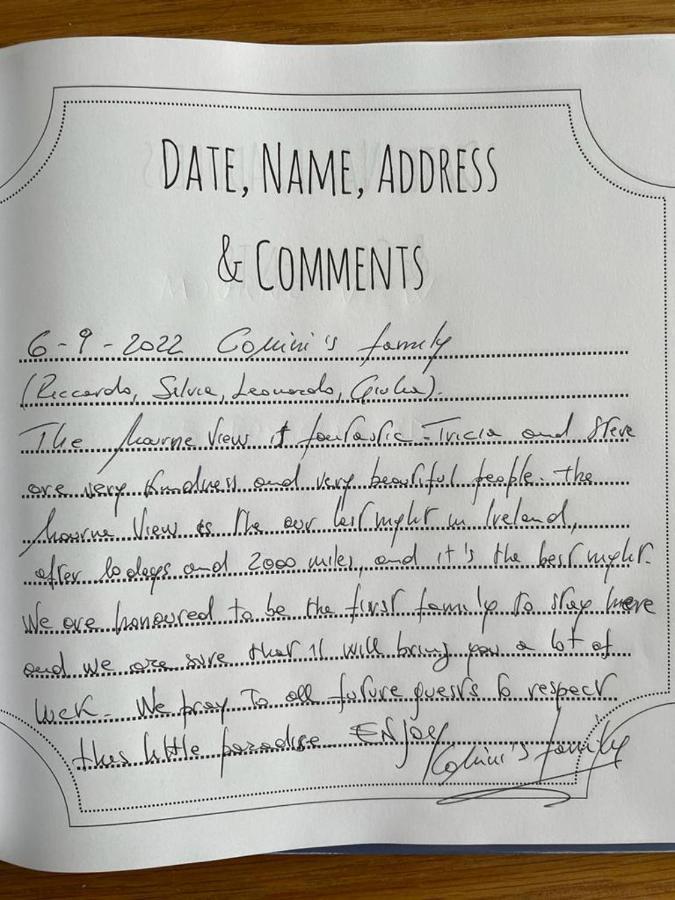 DATE, NAME, ADDRESS
& COMMENTS
6-9-2022 Collini's family
(Riccardo, Silvia, Leonardo, Giulia).
The Mourne View it fantastic - Tricia and Steve
are very kindness and very beautiful people. the
Mourne View is the our last night in Ireland,
after 10 days and 2000 miles, and it's the best night.
We are honoured to be the first family to stay here
and we are sure that it will bring you a lot of
luck. We pray to all future guests to respect
this little paradise. ENJOY
Collini's family